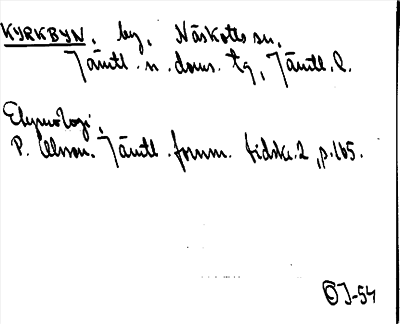 KYRKBYN, by, Näskotts sn.
Jämtl. n. doms. tg, Jämtl. l.
Etymologi,
P. Olsson. Jämtl. fornm. tidskr. 2, p. 165.
ÖJ-54